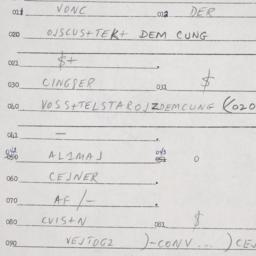 011 VONC 012 DER
020 OJSCUS+TEK+ DEM CUNG
021 $+
030 CINGSER 031 $
040 VOSS+TELSTAROJZDEMCUNG (<020
041 —
042 050 ALIMAJ 043 051 0
060 CEJNER
070 AF/-
080 KVIS+N 081 $
090 VEJTOG2 )-CONV...) CEJ